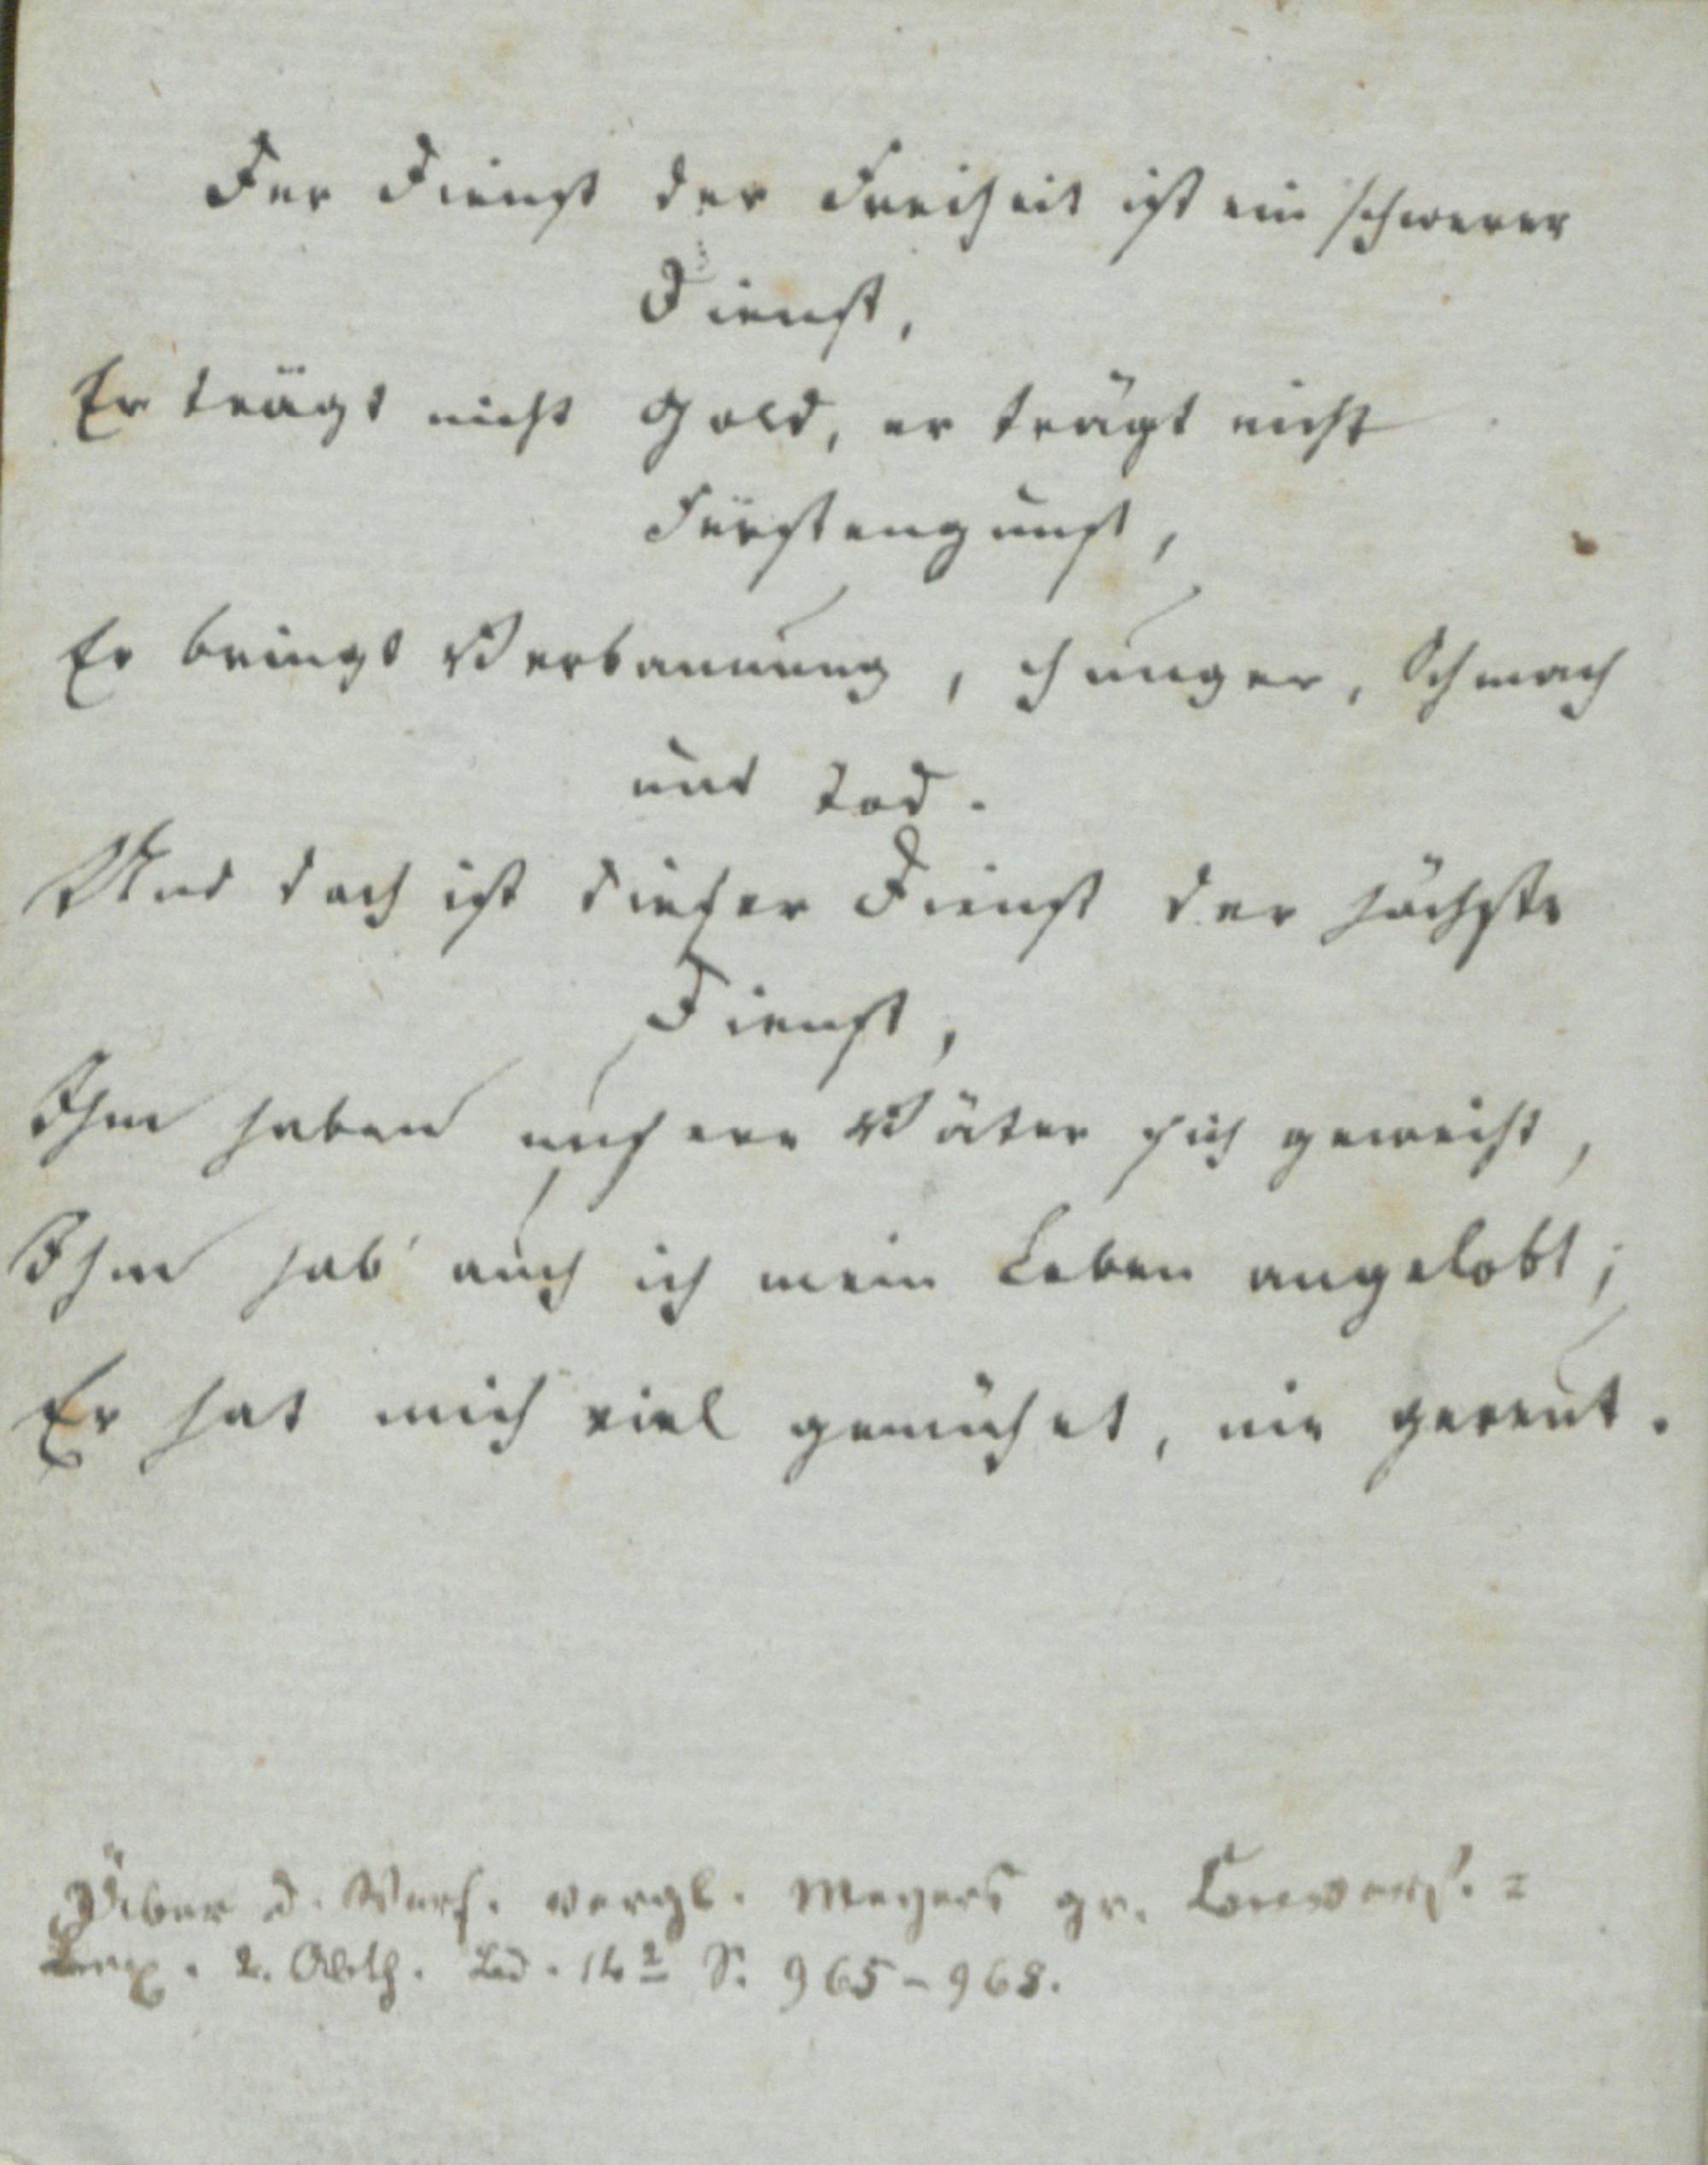 Der Dienst der Freiheit ist ein schwerer
Dienst,
Er trägt nicht Gold, er trägt nicht
Fürstengunst,
Er bringt Verbannung, Hunger, Schmach
und Tod.
Und doch ist dieser Dienst der höchste
Dienst,
Ihm haben unsere Väter sich geweiht,
Ihm hab' auch ich mein Leben angelobt;
Er hat mich viel gemühet, nie gereut.
Über d. Verf. vergl. Meyers gr.
Lex. 2. Abth. Bd. S. 965-968.